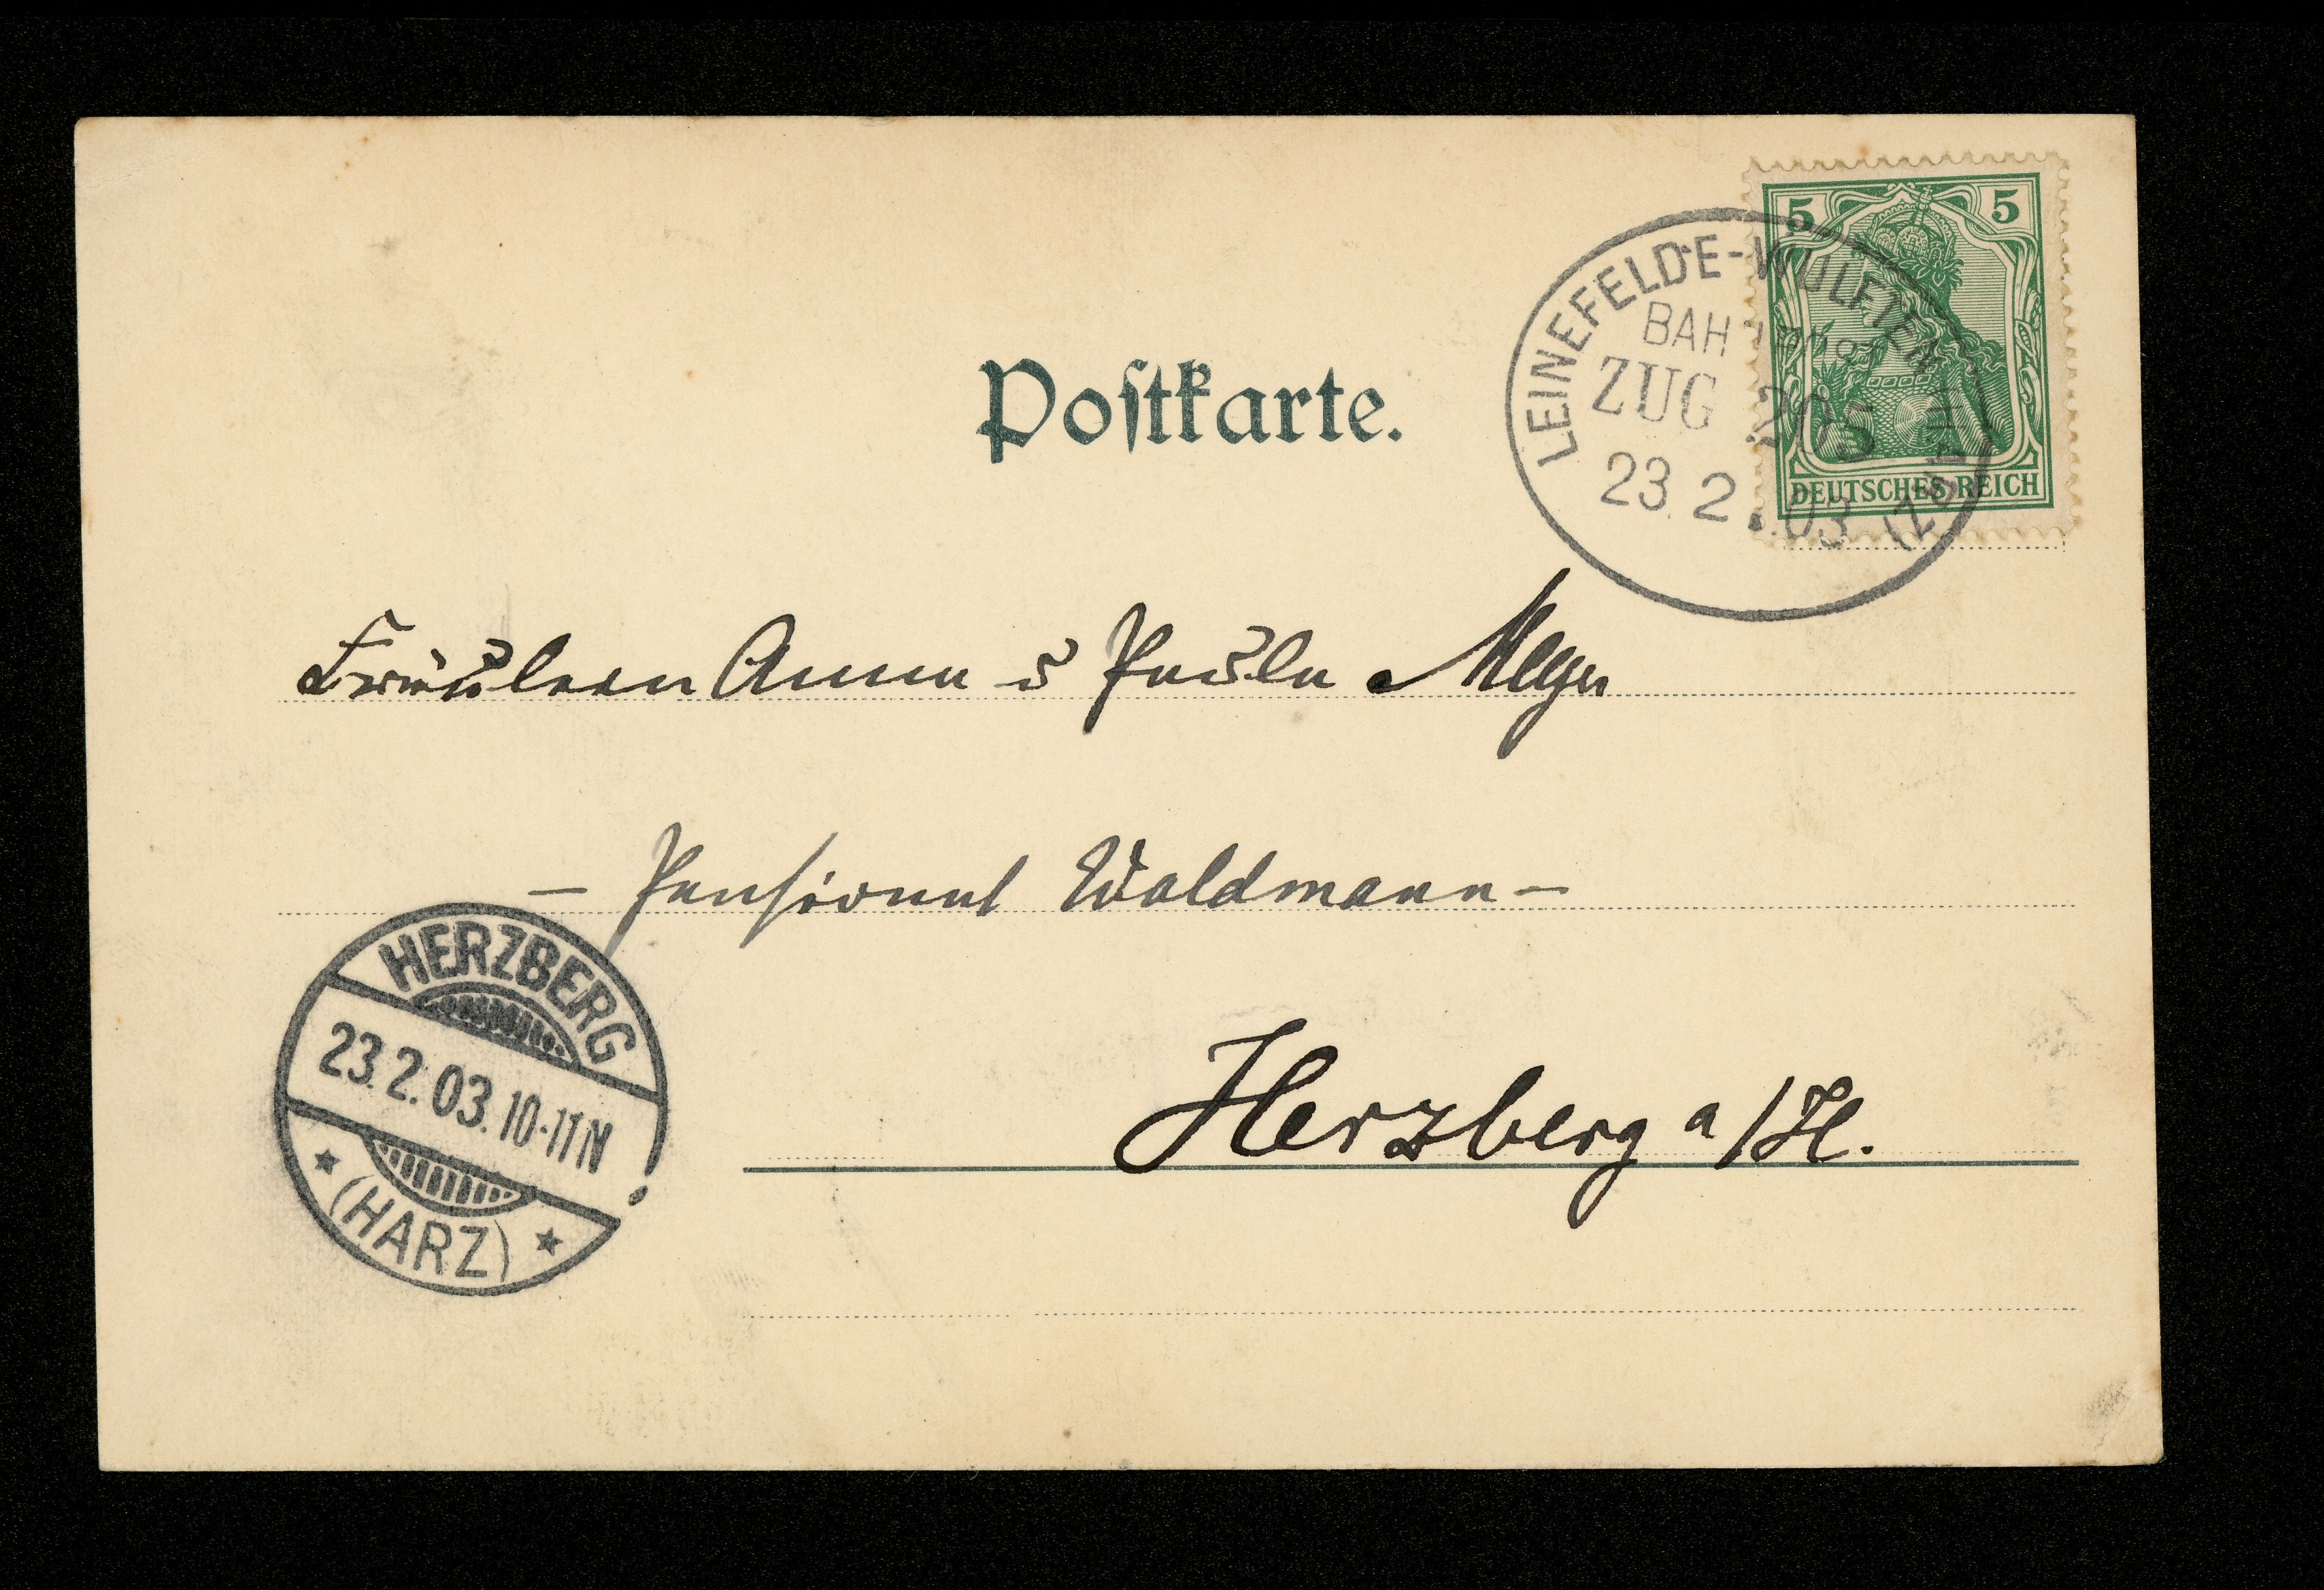 5 5
DEUTSCHES REICH
LEINEFELDE-WULFTEN (HARZ)
BAHNPOST
ZUG 205
23.2.03
Poſtkarte.
Fräulein Anna u Paula Meyer
– Pensionat Waldmann –
Herzberg a/H.
HERZBERG
23.2.03.10-11N
* (HARZ) *